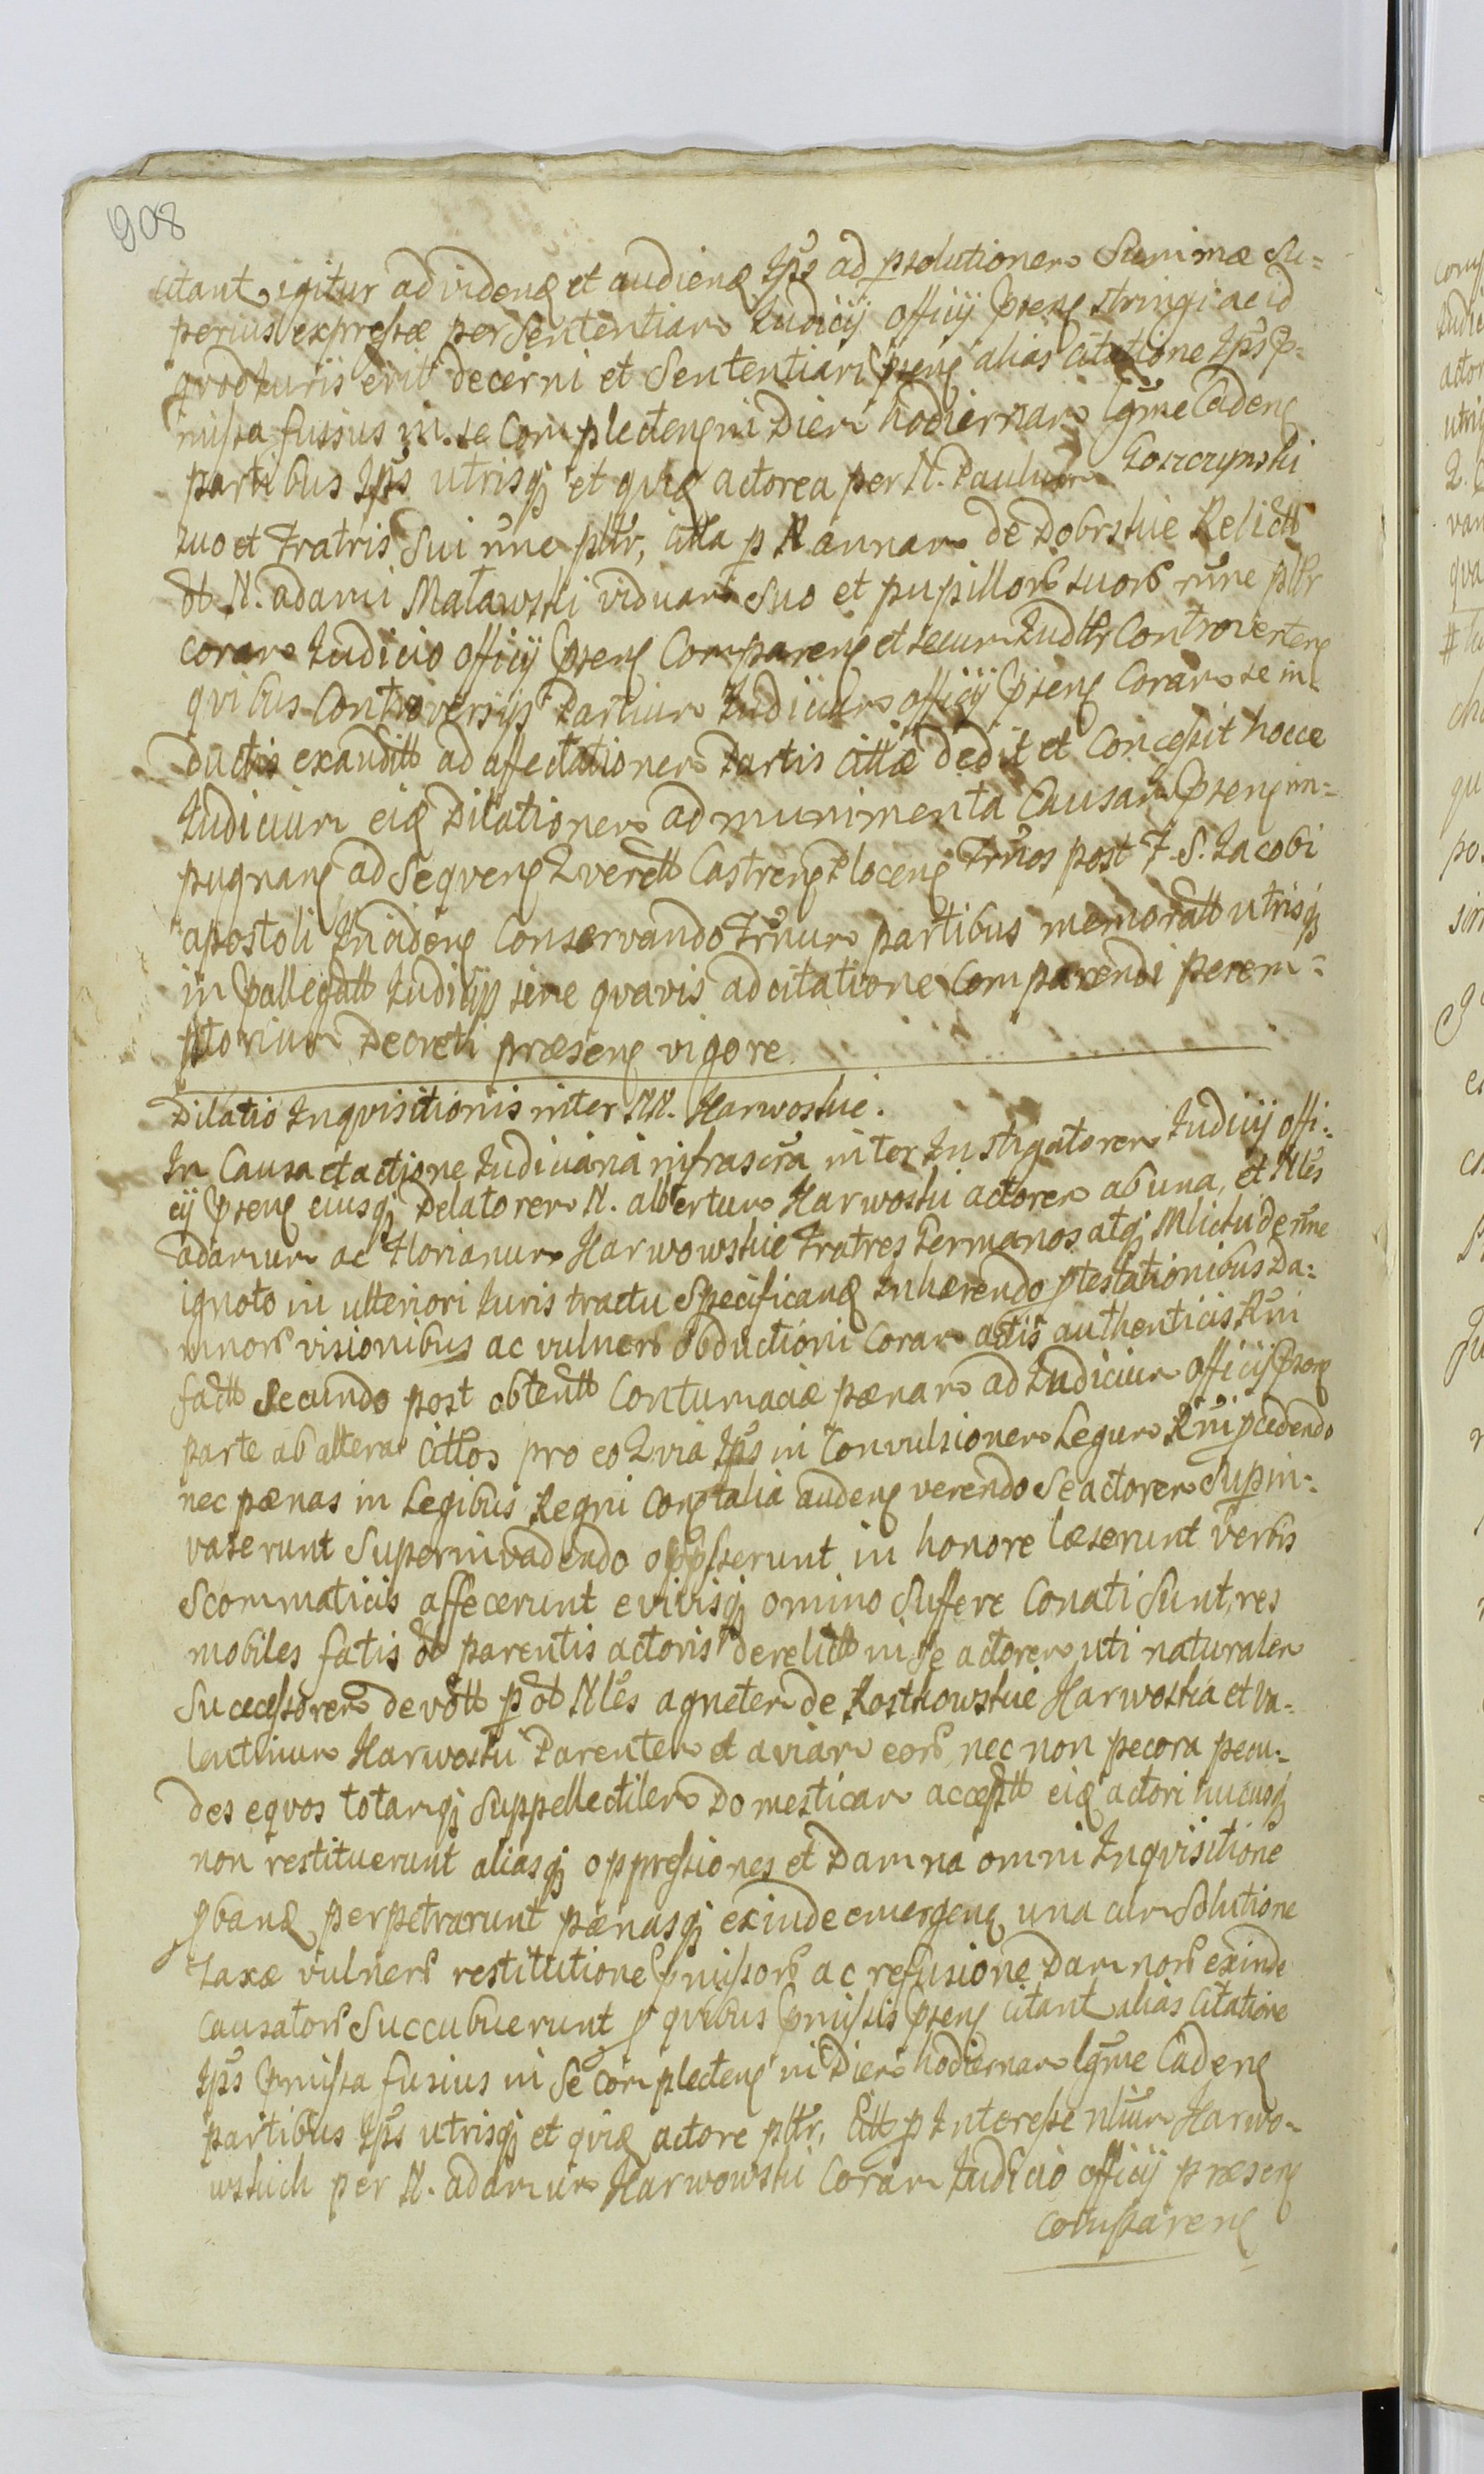 908
citant igitur ad videnď et audienď Ip̃s ad psolutionem Summæ Su=
perius expressæ per Sententiam Iudicij Officij Pseng stringi ac id
qvod Iuris erit decerni et Sententiari Pseng alias Citatione Ip̃s p=
missa fusius in se Complecteng in Diem hodiernam lg̃me Cadeng
partibus Ip̃s utrisqj et qvid actorea per N. Paulum Goszczynski
suo et Fratris Sui nñe pltr, Citta p N annam de Dobrskie Relictt
ot N. adami Matawski viduam Suo et pupillor suor nñe pltr
coram Iudicio Officij Pseng Compareng et secum Iudltr Controverteng
qvibus Controversijs Partium Iudicium officij Pseng Coram se in=
ductis exauditt ad affectationem Partis Cittæ dedit et Concessit hocce
Iudicium eid Dilationem ad munimenta Causam Pseng im=
pugnang ad Seqveng Qverett Castreng Ploceng Trños post F. S. Iacobi
apostoli Incideng Conservando Trñum partibus memoratt utrisqj
in Pallegatt Iudicijs sine qvavis adcitatione Comparendi perem=
ptorium Decreti præseng vigore.
Dilatio Inqvisitionis inter NN. Harwoskie.
In Causa et actione Iudiciaria infrascra inter Instigatorem Iudicij offi=
cij Pseng eiusqj Delatorem N. albertum Harwoski actorem ab una, et Nles
adamum ac Florianum Harwowskie Fratres Germanos atqj Mlictu de nñe
ignoto in ulteriori Iuris tractu Specificand Inhærendo ptestationibus Da=
mnor visionibus ac vulner obductioni Coram actis authenticis Rni
factt Secundo post obtentt Contumaciæ pænam ad Iudicium officij Pseng
parte ab altera Cittos pro eo Qvia Ip̃s in Convulsionem Legum Rni pcedendo
nec pænas in Legibus Regni Cong talia audeng verendo Se actorem Supin=
vaserunt Superinvadendo oppsserunt in honore læserunt verbis
Scommaticis affecerunt e vivisqj omino Suffere Conati Sunt, res
mobiles fatis ot parentis actoris derelictt in Se actorem uti naturalem
Successorem devott p ot Nles agnetem de Rostkowskie Harwoska et Va=
lentinum Harwoski Parentem et aviam eor, nec non pecora pecu=
des eqvos totamqj Suppellectilem Domesticam acceptt eid actori hucusqj
non restituerunt aliasqj oppressiones et Damna omni Inqvisitione
pband perpetrarunt pænasqj exinde emergeng una cum Solutione
Taxæ vulner restitutione Pmissor ac refusione Damnor exinde
causator Succubuerunt p qvibus Pmissis Pseng citant alias Citatione
Ip̃s Pmissa fusius in Se complecteng in Diem hodiernam lg̃me Cadeng
partibus Ip̃s utrisqj et qvid actore pltr, Citt p Interesse nlium Harwo=
wskich per N. adamum Harwowski Coram Iudicio officij præseng
compareng